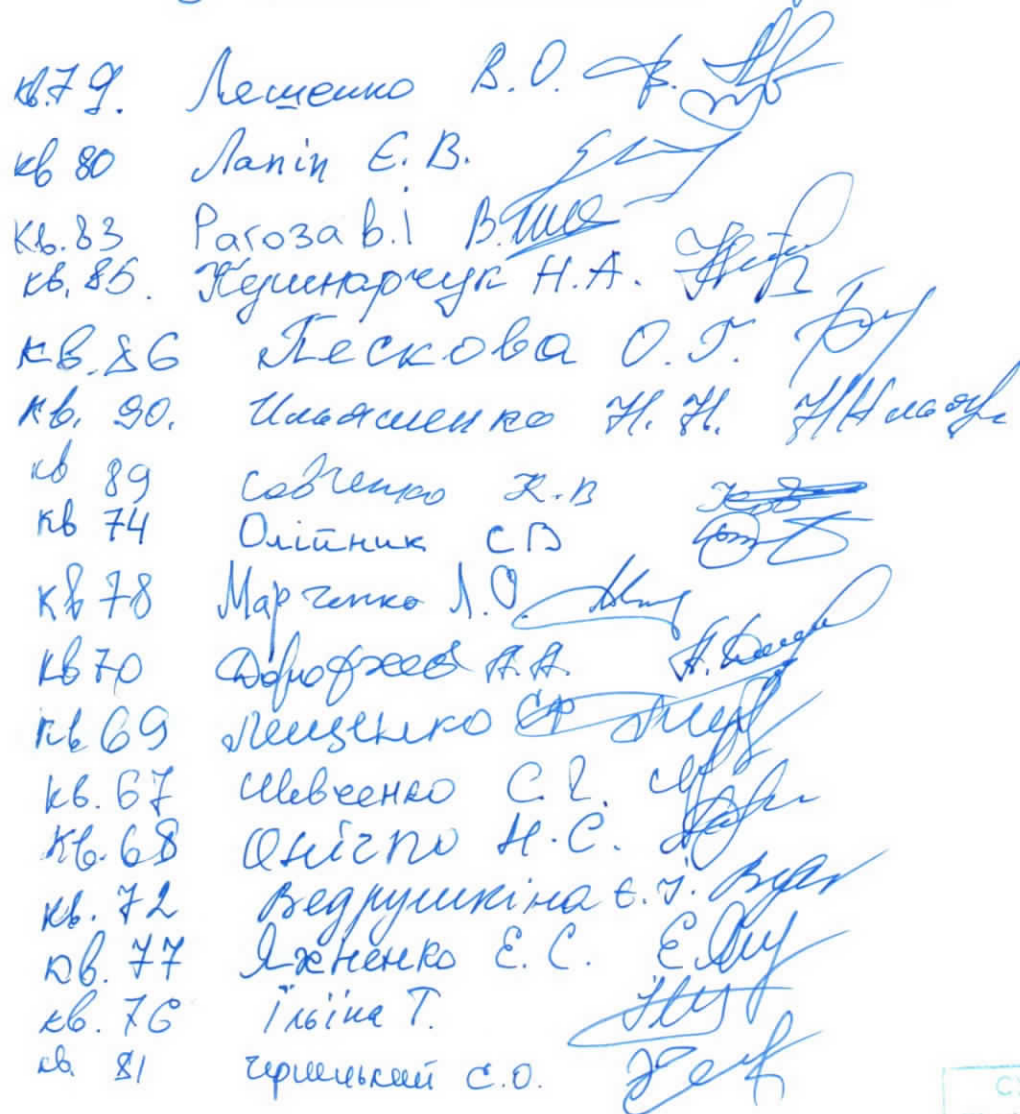 кв.79. Лещенко В.О.
кв 80 Лапін Є.В.
Кв.83 Рагоза В.І
кв.85. Кушнарчук Н.А.
кв.86 Пескова О.Г.
кв. 90. Ильяшенко Н.Н.
кв 89 Савченко К.В
кв 74 Олійник СВ
кв 78 Марченко Л.О.
кв 70 Дорофєєв А.А.
кв 69 Лещенко
кв. 67 Шевченко С.
кв. 68 Оніпко Н.С.
кв. 72 Ведрушкіна Є.І.
кв. 77 Яхненко Е.С.
кв. 76 Ільїна Т.
кв. 81 С.О.